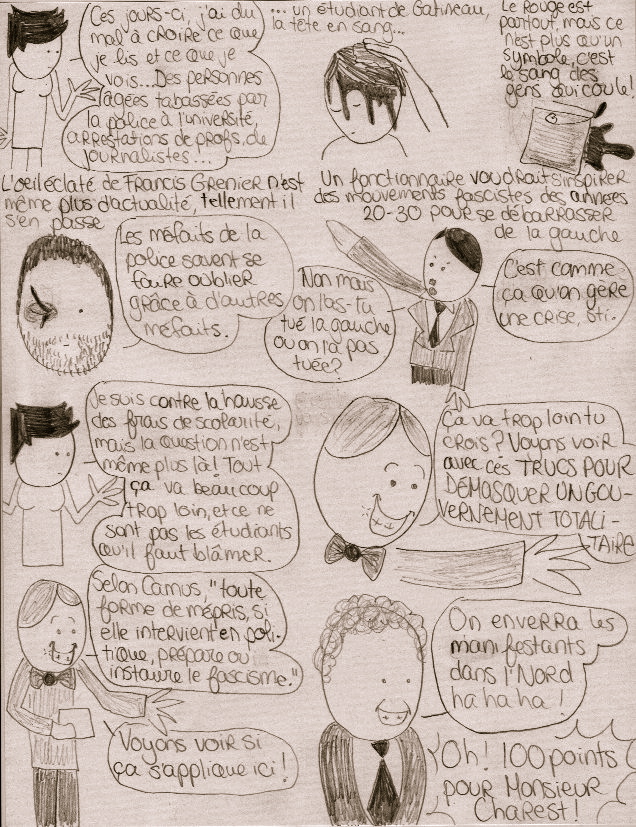 Ces jours-ci, j'ai du
mal à croire ce que
je lis et ce que je
vois... Des personnes
âgées tabassées par
la police à l'université,
arrestations de profs, de
journalistes...
... un étudiant de Gatineau,
la tête en sang...
Le rouge est
partout, mais ce
n'est plus qu'un
symbole, c'est
le sang des
gens qui coule!
L'oeil éclaté de Francis Grenier n'est
même plus d'actualité, tellement il
s'en passe
Les méfaits de la
police savent se
faire oublier
grâce à d'autres
méfaits.
Un fonctionnaire voudrait s'inspirer
des mouvements fascistes des années
20-30 pour se débarrasser
de la gauche
Non mais
on l'as-tu
tué la gauche
ou on l'a pas
tuée?
C'est comme
ça qu'on gère
une crise, sti.
Je suis contre la hausse
des frais de scolarité,
mais la question n'est
même plus là! Tout
ça va beaucoup
trop loin, et ce ne
sont pas les étudiants
qu'il faut blâmer.
Ça va trop loin tu
crois? Voyons voir
avec ces TRUCS POUR
DÉMASQUER UN GOU-
VERNEMENT TOTALI-
TAIRE
Selon Camus, "toute
forme de mépris, si
elle intervient en poli-
tique, prépare ou
instaure le fascisme."
Voyons voir si
ça s'applique ici!
On enverra les
manifestants
dans l'Nord
ha ha ha!
Oh! 100 points
pour Monsieur
Charest!